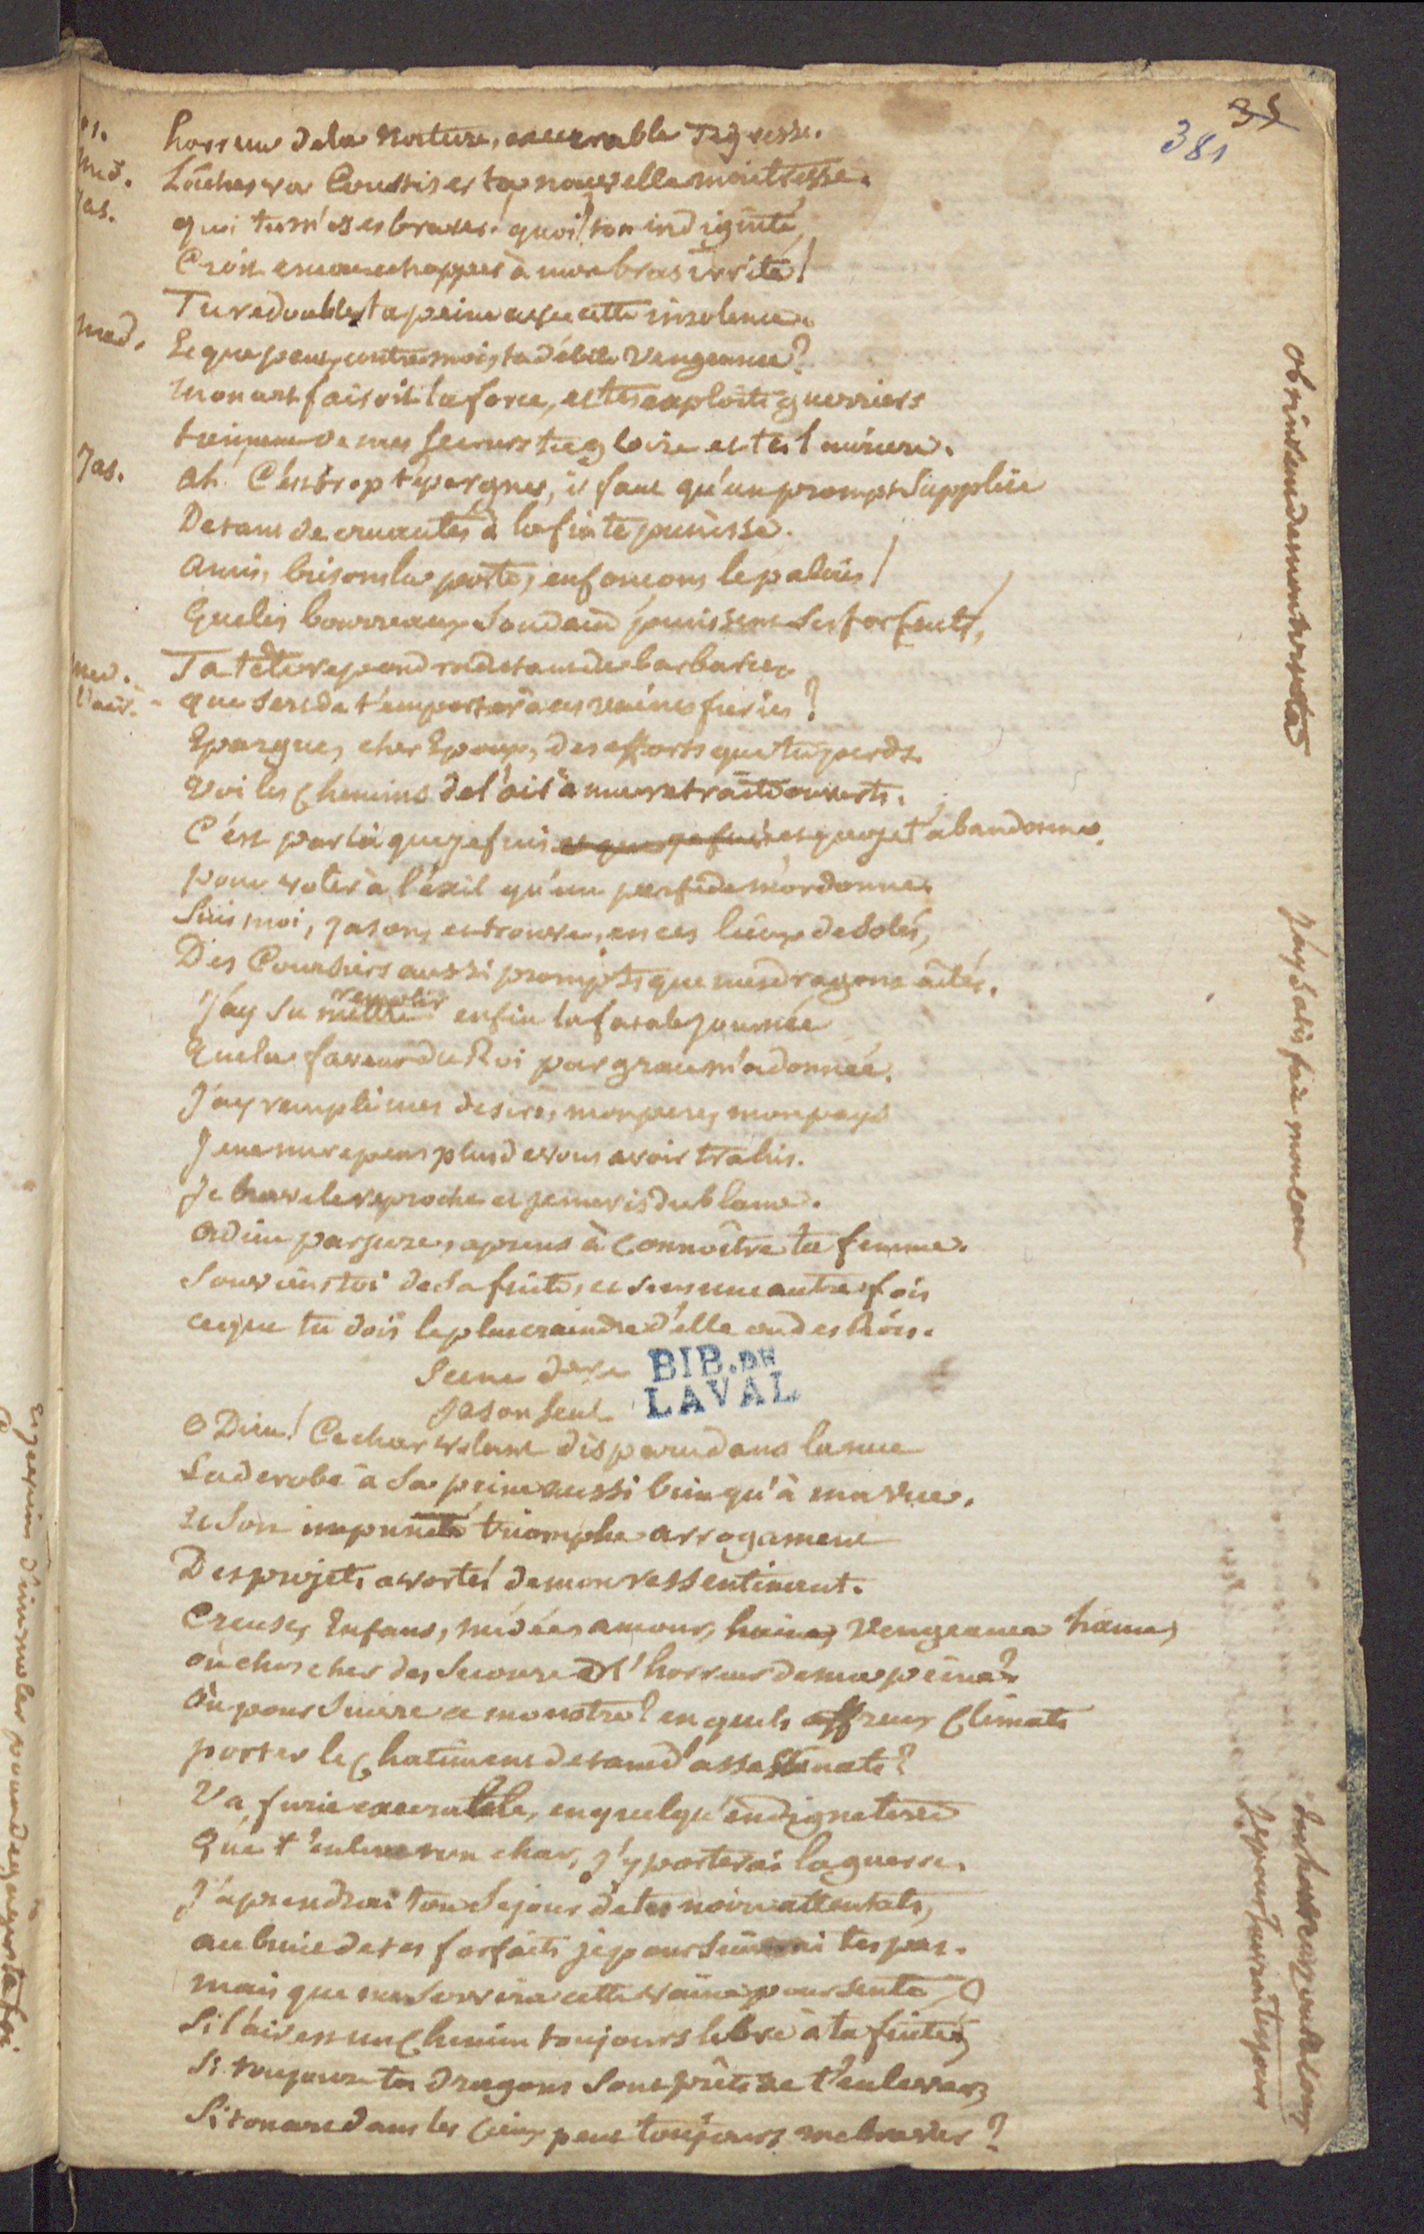 35
381
Jas. horreur de la Nature, execrable Tigresse.
Med. Lâche, va
Jas. qui tu m'oses braver. quoi! ton indignité
Croit encore echapper à mon bras irrité!
Tu redoubles ta peine avec cette insolence.
Med. Et que peut contre moi, ta débile Vengeance?
mon art faisoit ta force, et tes exploits guerriers
tiennent de mes secours
Jas. ah. C'est trop t'épargner, il faut qu'un prompt supplice
De tant de cruautés à la fin te punisse.
Amis, brisons la porte, enfonçons le palais!
Que les bourreaux soudain punissent ses forfaits,
Ta tête repondra de tant de barbaries
Med. l'air. - que sert de t'emporter à ces vaines furies?
Epargne, cher Epoux, des efforts que tu perds.
Voi les Chemins de l'air à ma retraite ouverts.
C'est par là que je fuis et que je t'abandonne
pour voler à l'exil qu'un perfide m'ordonne.
Suis moi, Jason, et trouve, en ces lieux desolés,
Des Coursiers aussi prompts que mes dragons ailés.
J'ay su mettre remplir enfin la fatale journée
Que la faveur du Roi par grace m'a donnée.
J'ay rempli mes desirs, mon pere, mon pays
Je ne me repens plus de vous avoir trahis.
Je brave le reproche et je me ris du blame.
Adieu parjure, aprens à Connoitre ta femme.
Souviens toi de sa fuite, et une autre fois
ce que tu dois le plus craindre d'elle ou des Rois.
Scene
Jason seul
BIB. DE
LAVAL
O Dieu! Ce char volant disparu dans la nue
La derobe à sa peine aussi bien qu'à ma vue.
Et son impunité triomphe arrogament
Des projets avortés de mon ressentiment.
Creuse, Enfans, médée, amour, haine, Vengeance haine,
où chercher des secours à l'horreur de ma peine?
Où poursuivre ce monstre? en quels affreux Climats
porter le Chatiment de tant d'assassinats?
Va, furie execrable, en quelqu'endigne terre
Que t'enleve ton char, j'y porterai la guerre.
J'aprendrai ton sejour de tes noirs attentats,
au bruit de tes forfaits je poursuivrai tes pas.
mais que me servira cette vaine poursuite
Si l'air est un Chemin toujours libre à ta fuite,
Si toujours tes dragons sont prêts de t'enlever,
Si ton art dans les Cieux peut toujours me braver?
J'ay satisfait mon coeur
Je poursuivrai tes pas